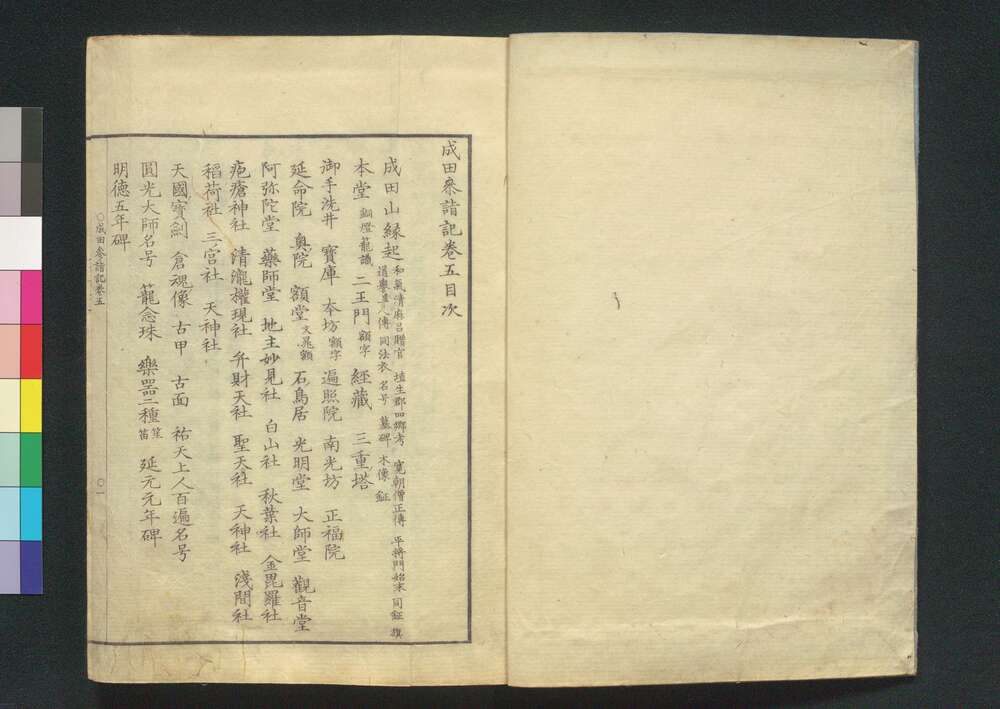 成田叅詣記卷五目次
成田山縁起 和氣清麻呂贈官 埴生郡四郷考 寛朝僧正傳 平將門始末 同鉦 旗 道譽上人傳 同法衣 名号 墓碑 木像 鉦
本堂 銅燈籠識 二王門 額字 經藏 三重塔
御手洗井 寶庫 本坊 額字 遍照院 南光坊 正福院
延命院 奥院 額堂 文晁額 石鳥居 光明堂 大師堂 觀音堂
阿弥陀堂 藥師堂 地主妙見社 白山社 秋葉社 金毘羅社
疱瘡神社 清瀧權現社 弁財天社 聖天社 天神社 淺間社
稲荷社 三宮社 天神社
天國寳劍 倉魂像 古甲 古面 祐天上人百遍名号
圓光大師名号 籠念珠 樂器二種 笙 笛 延元元年碑
明徳五年碑
○成田參詣記卷五 ○一